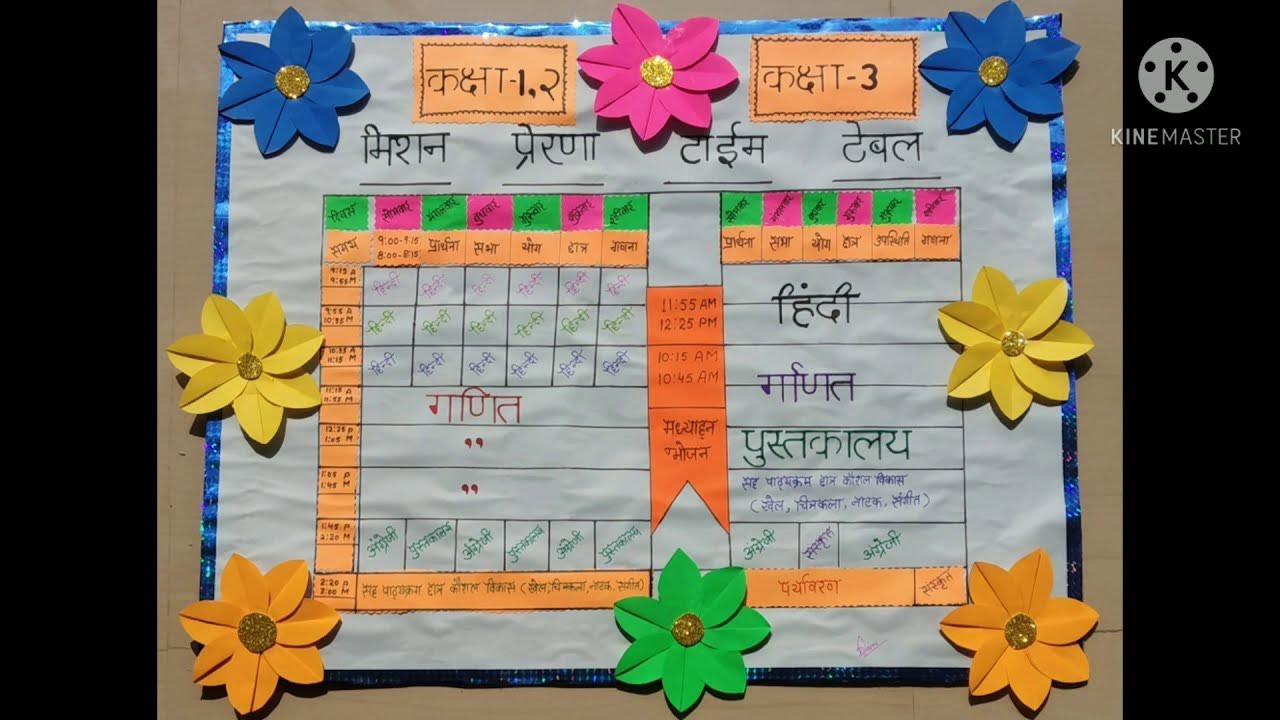 कक्षा-1,२
कक्षा-3
KINEMASTER
मिशन प्रेरणा टाईम टेबल
दिवस सोमवार मंगलवार बुधवार गुरुवार शुक्रवार शनिवार
सोमवार मंगलवार बुधवार गुरुवार शुक्रवार शनिवार
समय 9:00-9:15 प्रार्थना सभा योग छात्र गणना
8:00-8:15
प्रार्थना सभा योग छात्र उपस्थिति गणना
9:15 A
9:55 M
हिन्दी हिन्दी हिन्दी हिन्दी हिन्दी हिन्दी
9:55 A
10:35 M
हिन्दी हिन्दी हिन्दी हिन्दी हिन्दी हिन्दी
10:35 A
11:15 M
हिन्दी हिन्दी हिन्दी हिन्दी हिन्दी हिन्दी
11:15 A
11:55 M
गणित
12:25 P
1:05 M
"
1:05 P
1:45 M
"
1:45 P
2:20 M
अंग्रेजी पुस्तकालय अंग्रेजी पुस्तकालय अंग्रेजी पुस्तकालय
2:20 P
3:00 M
सह पाठ्यक्रम छात्र कौशल विकास (खेल, चित्रकला, नाटक, संगीत)
11:55 AM
12:25 PM
10:15 AM
10:45 AM
मध्याह्न
भोजन
हिंदी
गणित
पुस्तकालय
सह पाठ्यक्रम छात्र कौशल विकास
(खेल, चित्रकला, नाटक, संगीत)
अंग्रेजी संस्कृत अंग्रेजी
पर्यावरण संस्कृत